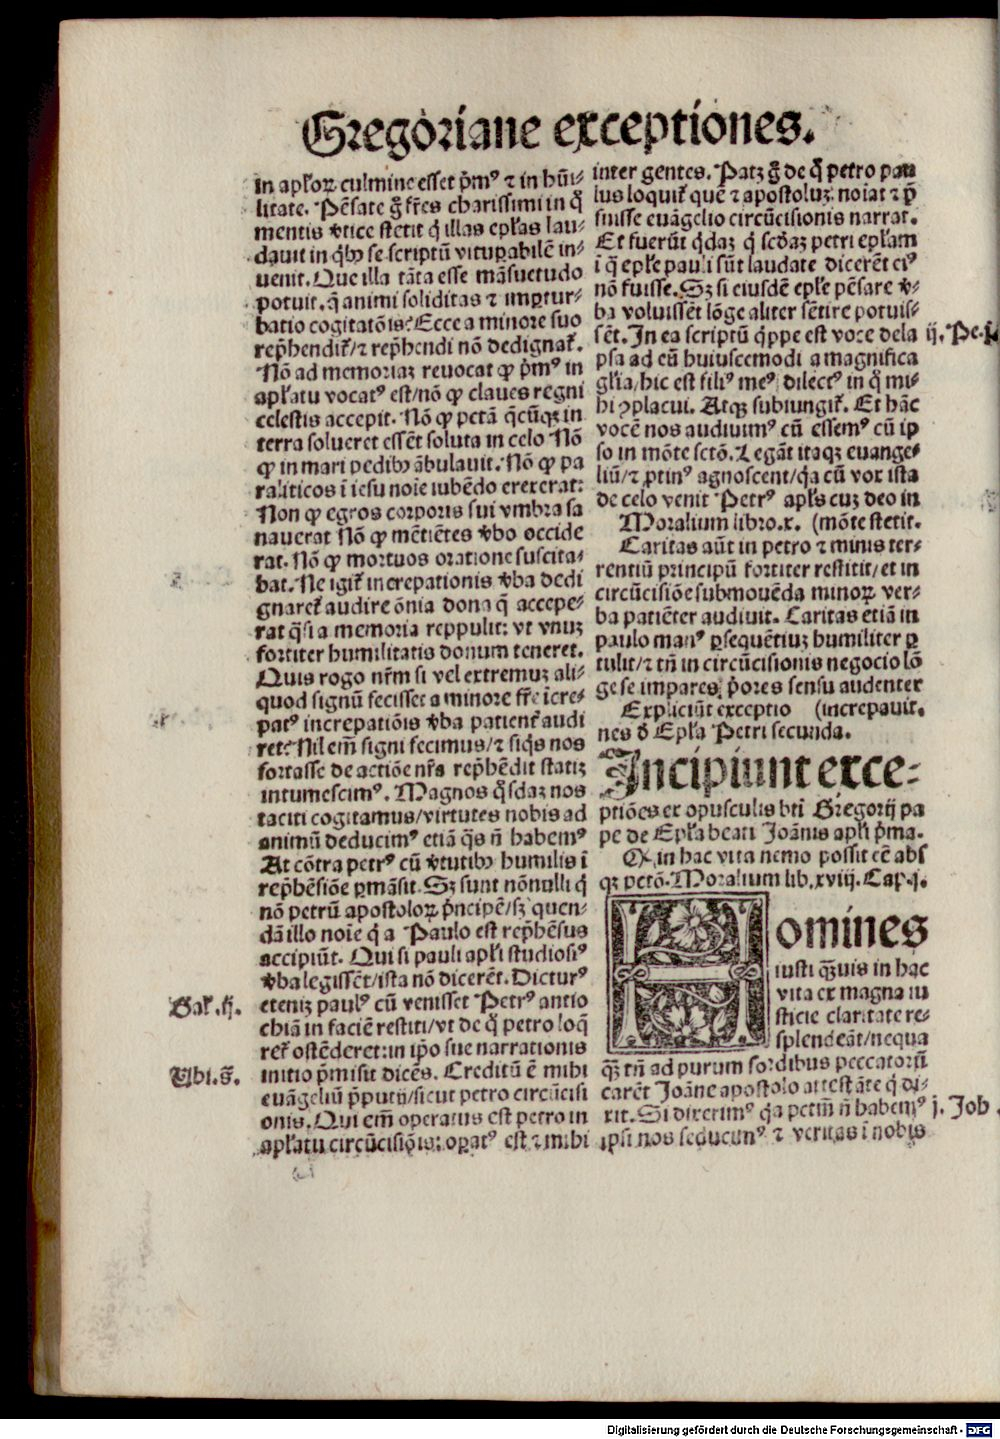 Gregoriane exceptiones.
in apl'oꝝ culmine esset p̄mꝰ ⁊ in hūi-
litate. Pēsate g̊ fr̄es charissimi in q̊
mentis v̓tice stetit q̇ illas epl'as lau-
dauit in qͥbꝫ se scriptū vituꝑabilē in-
uenit. Que illa tāta esse māsuetudo
potuit. q̄ animi soliditas ⁊ imꝑtur-
batio cogitatōis? Ecce a minore suo
rep̄hendit᷑/⁊ rep̄hendi nō dedignat᷑.
Nō ad memoriaꝫ reuocat ꝙ p̄mꝰ in
apl'atu vocatꝰ est/nō ꝙ claues regni
celestis accepit. Nō ꝙ pctā q̄cūqꝫ in
terra solueret essēt soluta in celo Nō
ꝙ in mari pedibꝫ ābulauit. Nō ꝙ pa
raliticos ī iesu noīe iubēdo erexerat:
Non ꝙ egros corporis sui vmbra sa
nauerat Nō ꝙ mētiētes v̓bo occide
rat. Nō ꝙ mortuos oratione suscita-
bat. Ne igit᷑ increpationis v̓ba dedi
gnaret᷑ audire ōnia dona q̄ accepe-
rat q̊si a memoria reppulit: vt vnuꝫ
fortiter humilitatis donum teneret.
Quis rogo nr̄m si vel extremuꝫ ali-
quod signū fecisset a minore fr̄e īcre-
patꝰ increpatiōis v̓ba patient᷑ audi
ret? Nil em̄ signi fecimus/⁊ siq̇s nos
fortasse de actiōe nr̄a rep̄hēdit statiꝫ
intumescimꝰ. Magnos q̊sdaꝫ nos
taciti cogitamus/virtutes nobis ad
animū deducimꝰ etiā q̊s n̄ habemꝰ
At cōtra petrꝰ cū v̓tutibꝫ humilis ī
rep̄hēsiōe ꝑmāsit. Sꝫ sunt nōnulli q̇
nō petrū apostoloꝝ p̄ncipē/sꝫ quen-
dā illo noīe q̇ a Paulo est rep̄hēsus
accipiūt. Qui si pauli apl'i studiosiꝰ
v̓ba legissēt/ista nō dicerēt. Dicturꝰ
eteniꝫ paulꝰ cū venisset Petrꝰ antio
chiā in faciē restiti/vt de q̊ petro loq̄
ret᷑ ostēderet: in ip̄o sue narrationis
initio p̄misit dicēs. Creditū ē mihi
euāgeliū p̄putij/sicut petro circūcisi
onis. Qui em̄ operatus est petro in
apl'atu circūcisiōis: oꝑatꝰ est ⁊ mihi
Gal'.ij.
Vbi.s̄.
inter gentes. Patꝫ g̊ de q̊ petro pau
lus loquit᷑ quē ⁊ apostoluꝫ noīat ⁊ p̄
fuisse euāgelio circūcisionis narrat.
Et fuerūt q̇daꝫ q̇ scd̄aꝫ petri epl'am
ī q̄ epl'e pauli sūt laudate dicerēt eiꝰ
nō fuisse. Sꝫ si eiusdē epl'e pēsare v̓-
ba voluissēt lōge aliter sētire potuis-
sēt. In ea scriptū q̇ppe est voce dela
psa ad eū huiuscemodi a magnifica
gl'ia/hic est filiꝰ meꝰ dilectꝰ in q̊ mi-
hi ꝯplacui. Atqꝫ subiungit᷑. Et hāc
vocē nos audiuimꝰ cū essemꝰ cū ip
so in mōte sctō. Legāt itaqꝫ euange-
liū/⁊ ꝓtinꝰ agnoscent/q̇a cū vox ista
de celo venit Petrꝰ apl's cuꝫ deo in
Moralium libro.x. (mōte stetit.
Caritas aūt in petro ⁊ minis ter-
rentiū principū fortiter restitit/et in
circūcisiōe submouēda minoꝝ ver-
ba patiēter audiuit. Caritas etiā in
paulo manꝰ ꝑsequētiuꝫ humiliter ꝑ
tulit/⁊ tn̄ in circūcisionis negocio lō
ge se impares p̄ores sensu audenter
Expliciūt exceptio (increpauit.
nes d̓ Epl'a Petri secunda.
ij. Pe.j.
Incipiunt exce-
ptiōes ex opusculis bt̄i Gregorij pa
pe de Epl'a beati Joānis apl'i p̄ma.
Q, in hac vita nemo possit eē abs
qꝫ pctō. Moralium lib.xviij. Cap.j.
Homines
iusti q̄ꝫuis in hac
vita ex magna iu
sticie claritate re-
splendeāt/nequa
q̄ꝫ tn̄ ad purum sordibus peccatorū
carēt Joāne apostolo attestāte q̇ di-
xit. Si dixerimꝰ q̇a pctm̄ n̄ habemꝰ
ipsi nos seducimꝰ ⁊ veritas ī nobis
j. Job
Digitalisierung gefördert durch die Deutsche Forschungsgemeinschaft - DFG